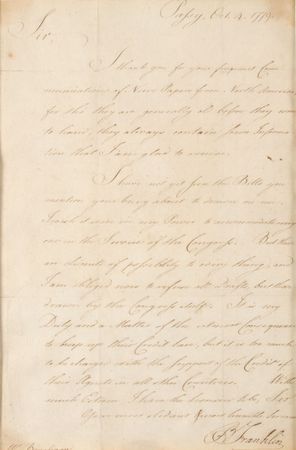 Passy, Oct. 4. 1779.
Sir,
I thank you for your frequent Com-
munications of News Papers from North America
for tho' they are generally all before they come
to hand, they always contain some Informa-
tion that I am glad to receive.
I have not yet seen the Bills you
mention your being about to draw on me.
I wish it were in my Power to accommodate every
one in the Service of the Congress. But there
are Limits of possibility to every thing, and
I am obliged now to refuse all Drafts but those
drawn by the Congress itself. It is my
Duty and a Matter of the utmost Consequence
to keep up their Credit here, but it is too much
to be charged with the Support of the Credit of
their Agents in all other Countries. With
much Esteem I have the honour to be, Sir
Your most obedient & most humble Servant
B Franklin